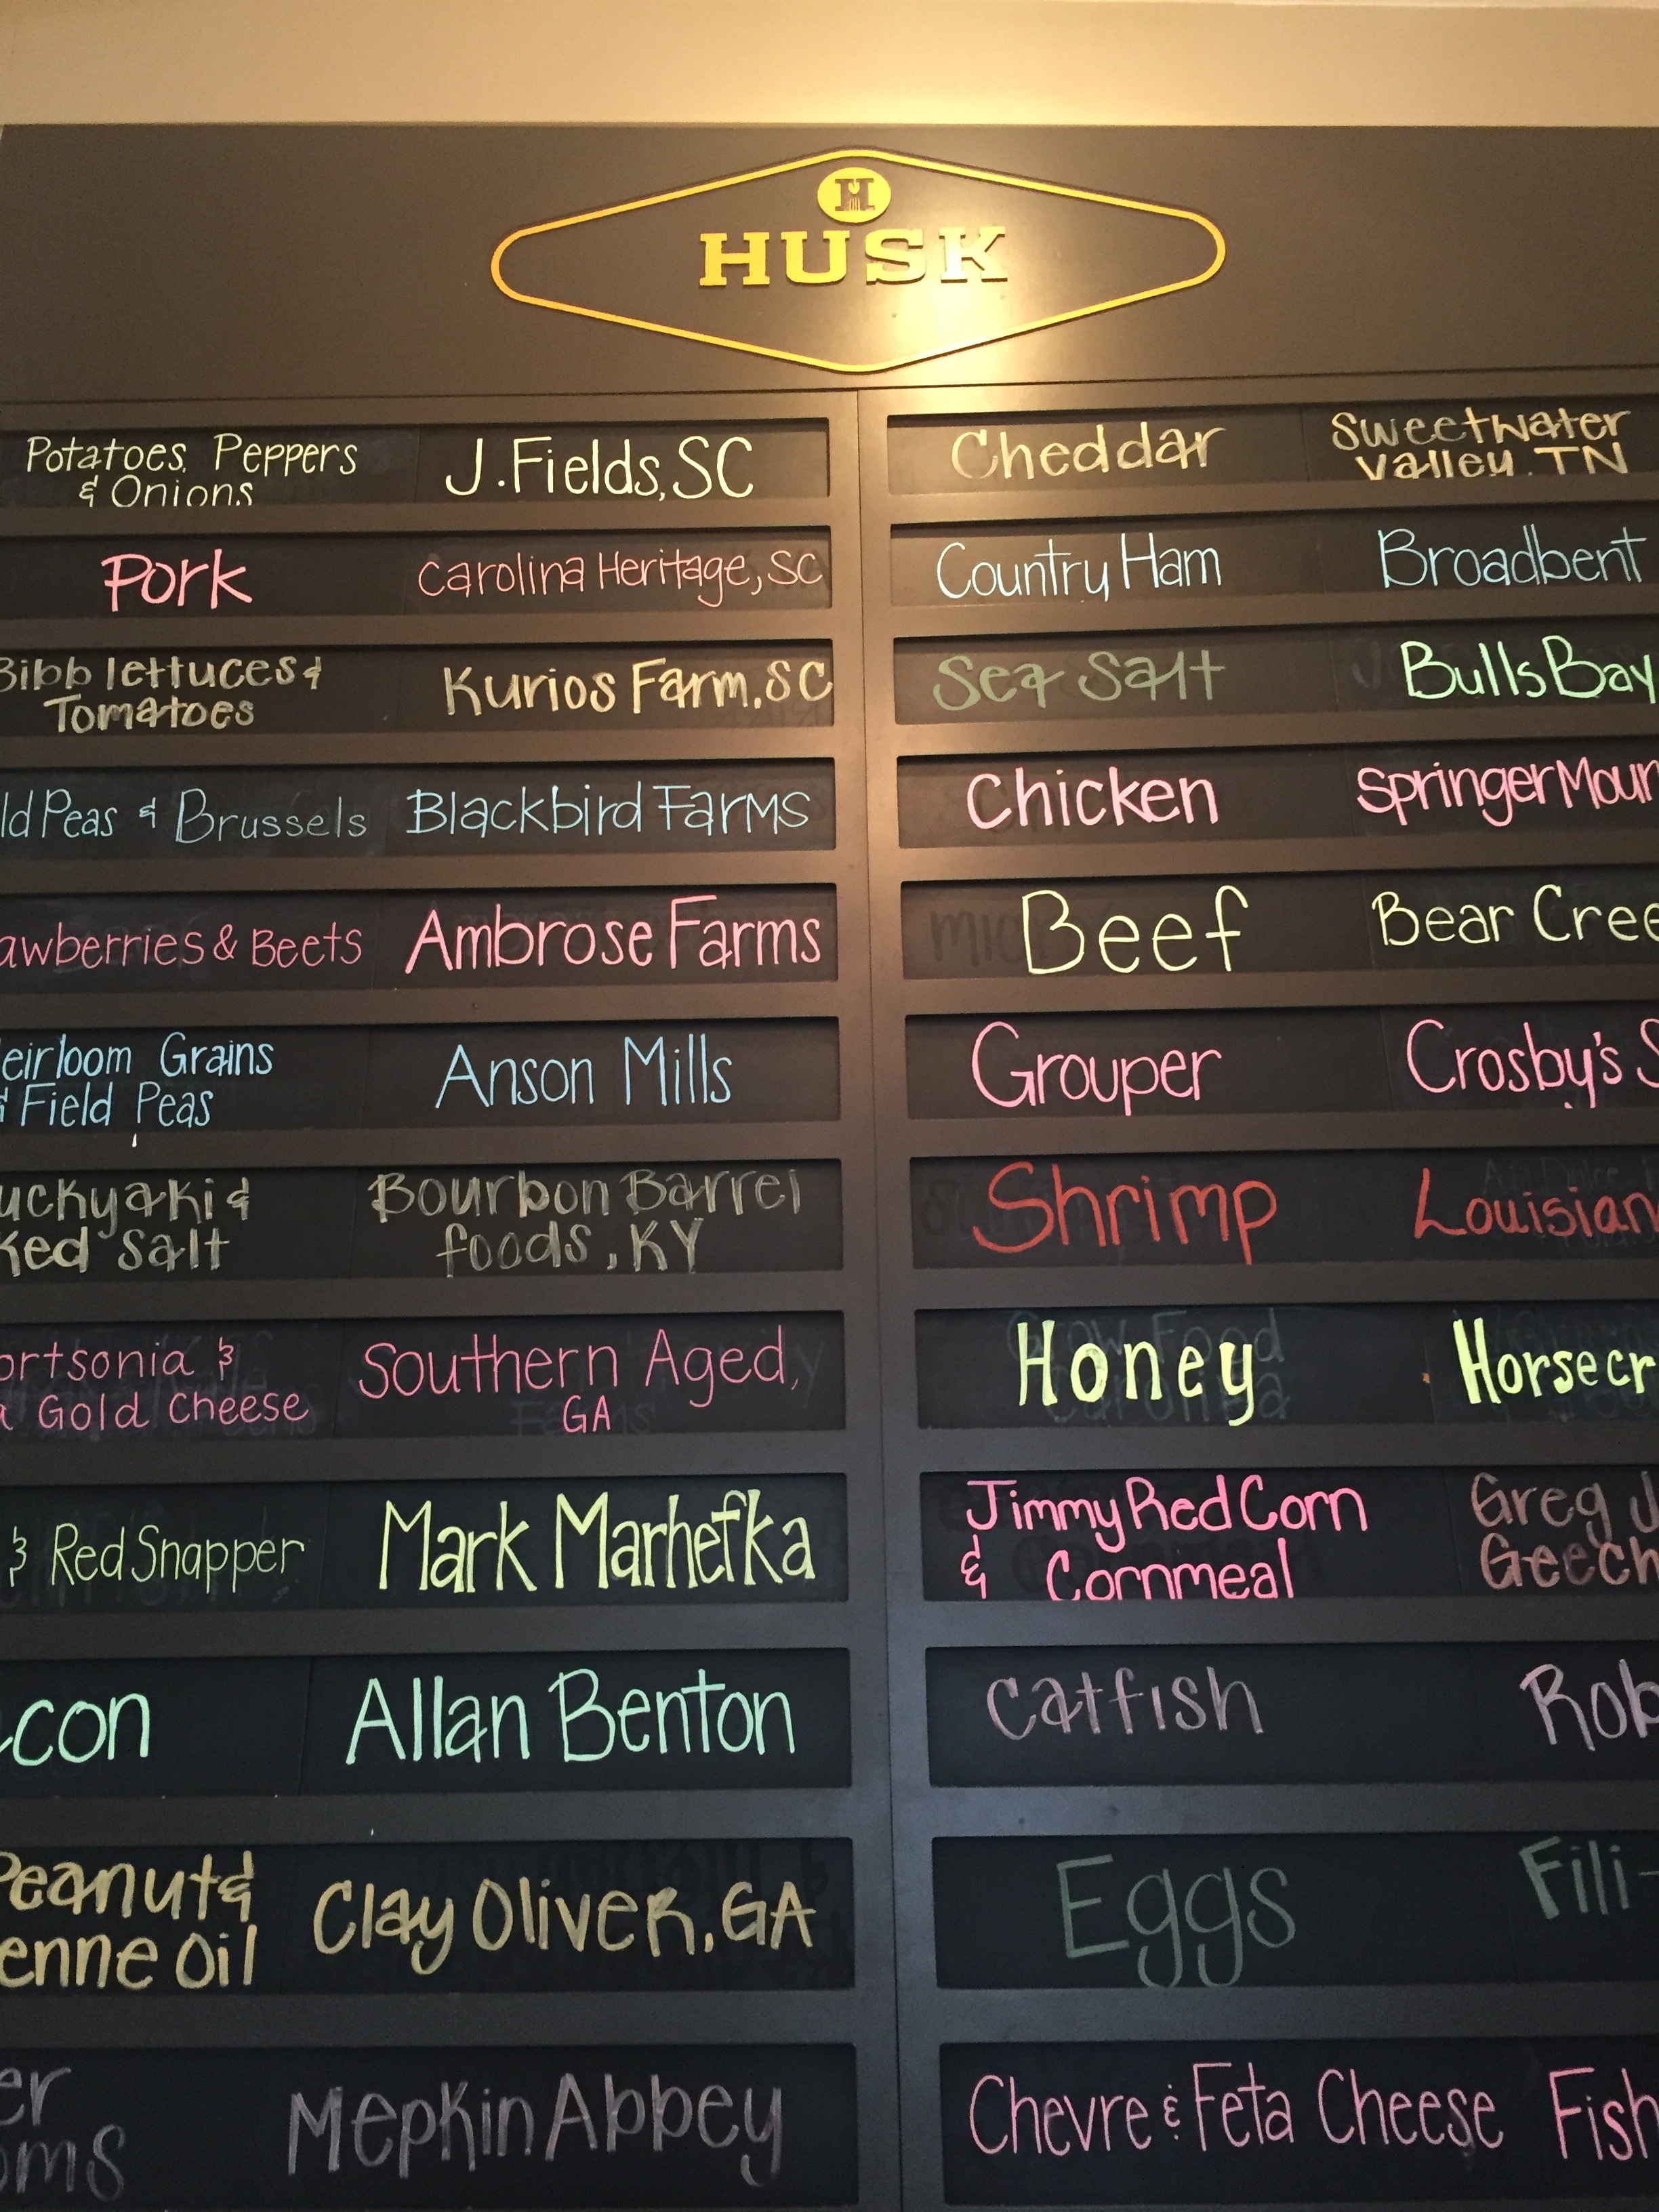 H
HUSK
Potatoes, Peppers
& Onions
J. Fields, SC
Pork
Carolina Heritage, SC
Bibb lettuces &
Tomatoes
Kurios Farm, SC
ld Peas & Brussels
Blackbird Farms
awberries & Beets
Ambrose Farms
eirloom Grains
& Field Peas
Anson Mills
uckyaki &
ked Salt
Bourbon Barrel
foods, KY
ortsonia &
a Gold Cheese
Southern Aged,
GA
& Red Snapper
Mark Marhefka
con
Allan Benton
Peanut &
enne Oil
Clay Oliver, GA
er
oms
Mepkin Abbey
Cheddar
Sweetwater
Valley, TN
Country Ham
Broadbent
Sea Salt
Bulls Bay
Chicken
Springer Moun
Beef
Bear Cree
Grouper
Crosby's S
Shrimp
Louisian
Honey
Horsecr
Jimmy Red Corn
& Cornmeal
Greg J
Geech
Catfish
Rob
Eggs
Fili-
Chevre & Feta Cheese
Fish